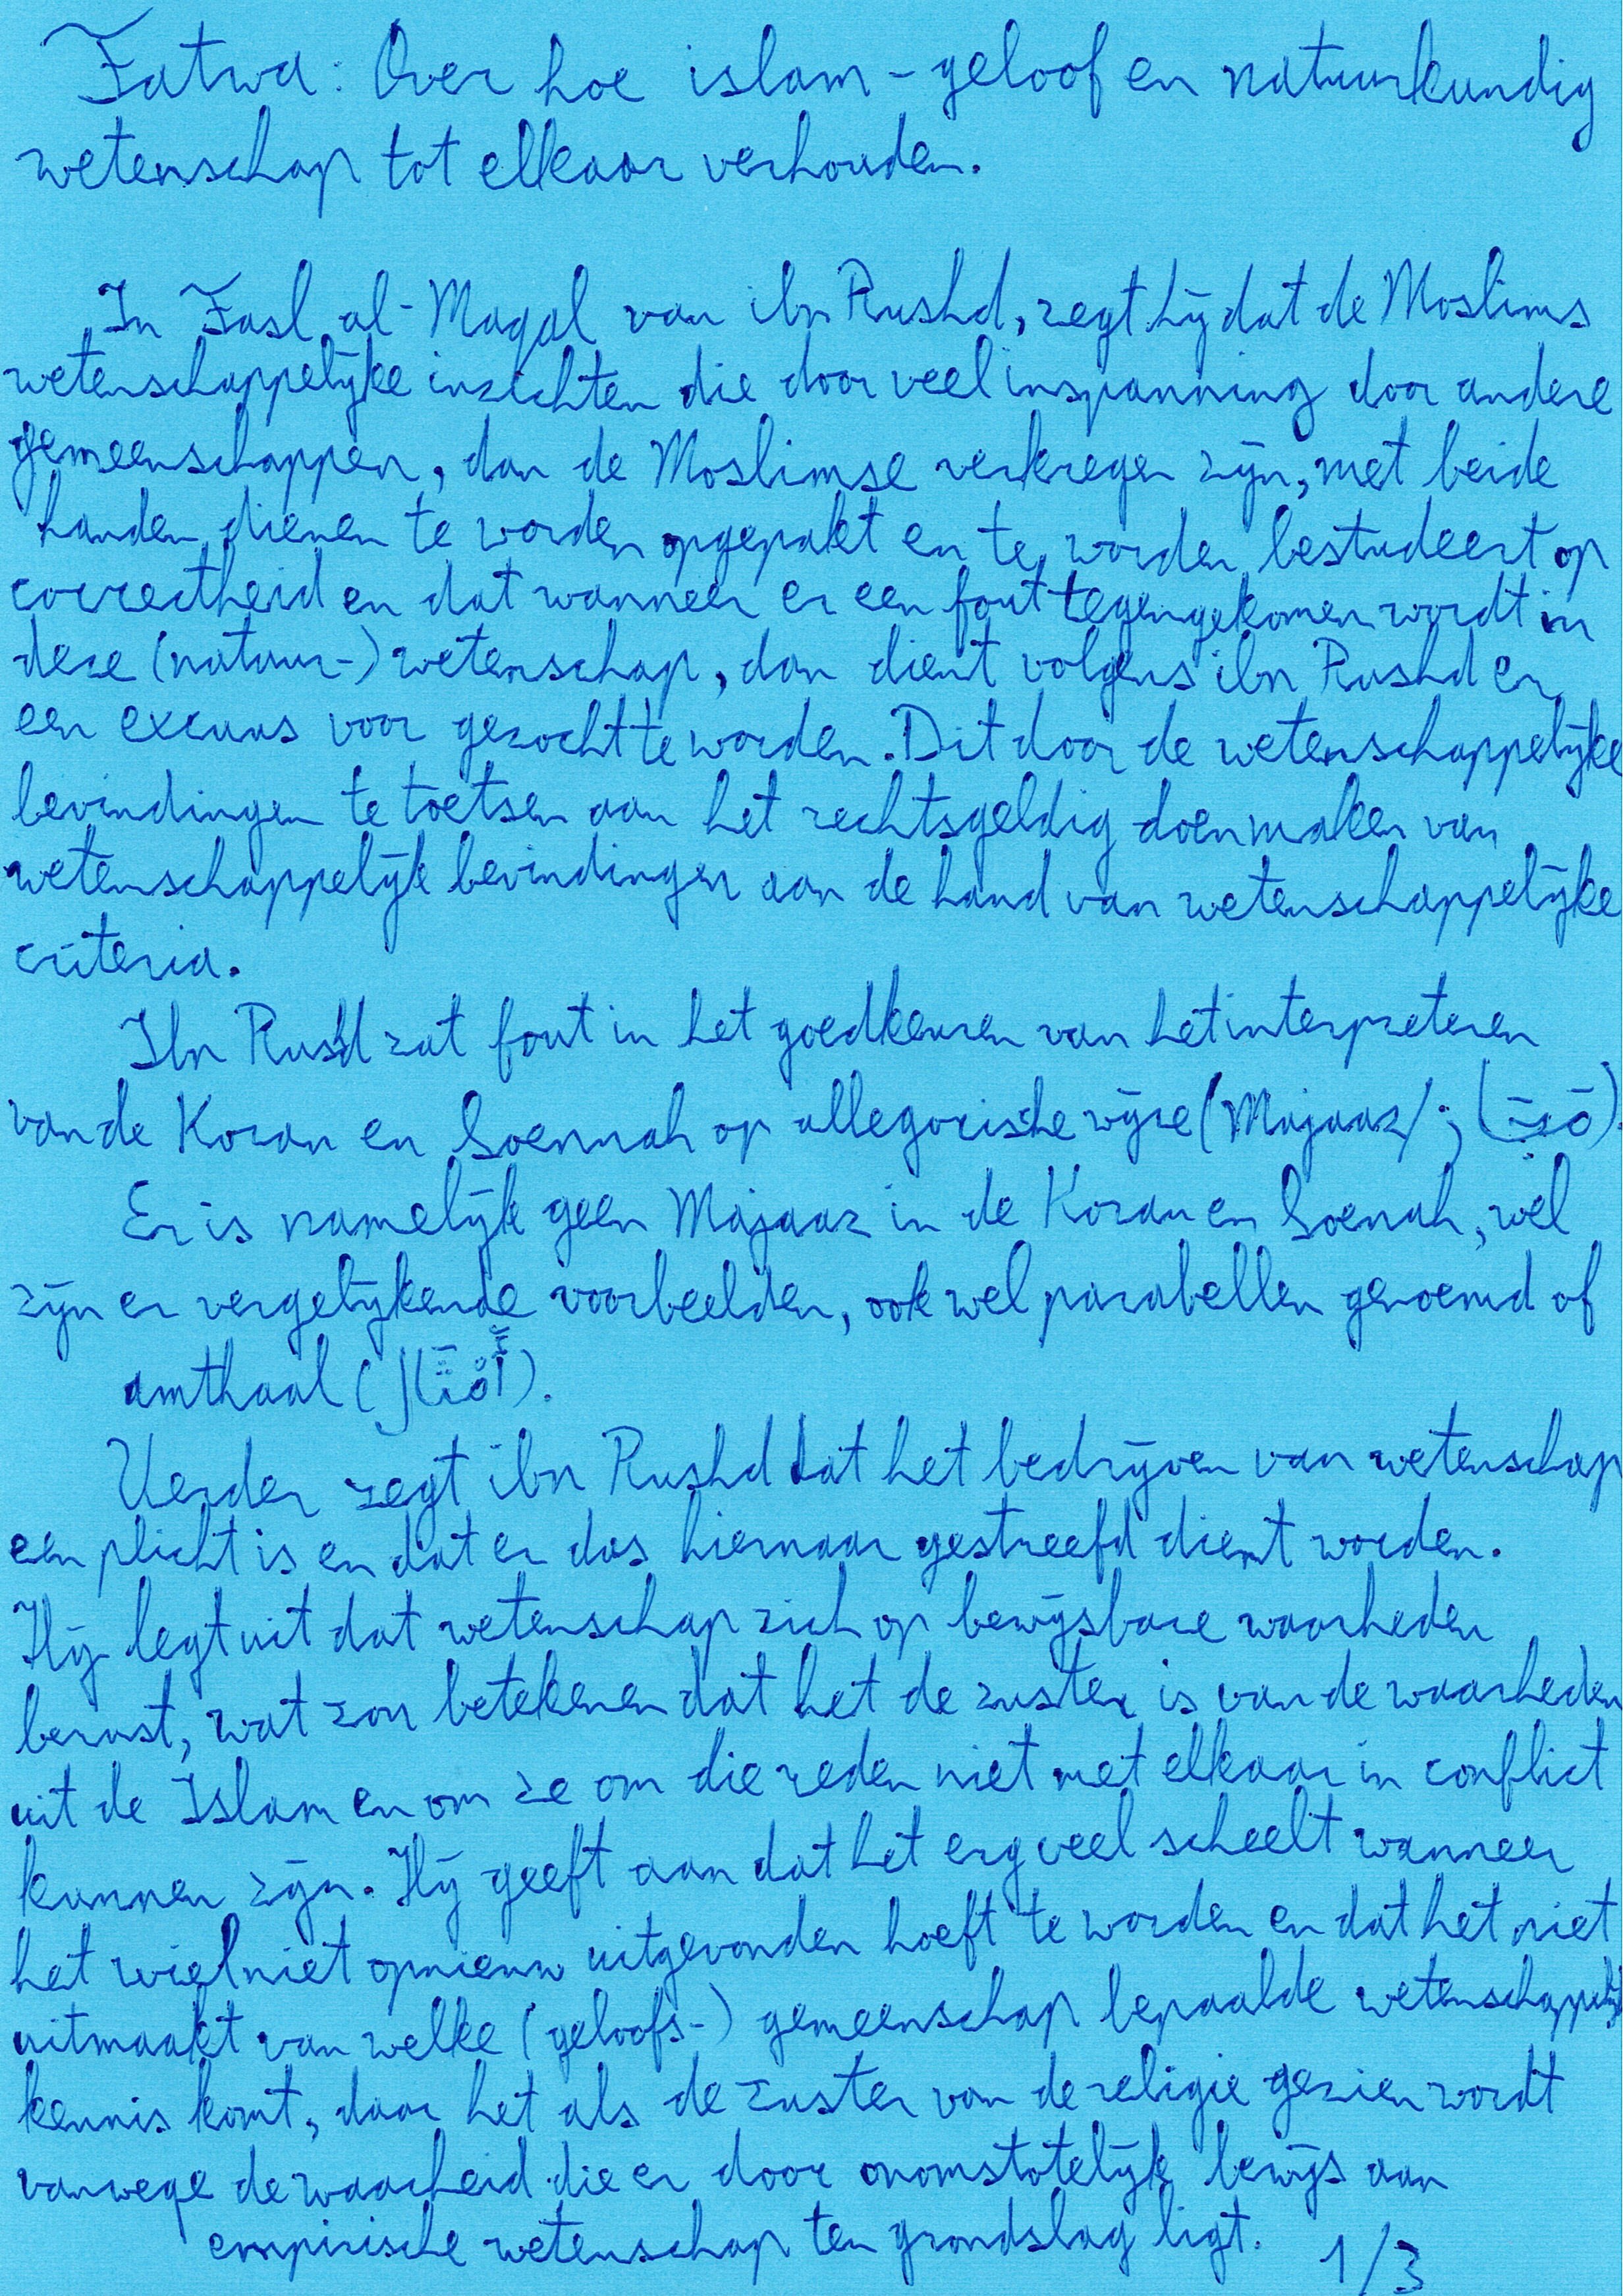 Fatwa: Over hoe islam-geloof en natuurkundig
wetenschap tot elkaar verhouden.
In Fasl al-Maqal van ibn Rushd, zegt hij dat de Moslims
wetenschappelijke inzichten die door veel inspanning door andere
gemeenschappen, dan de Moslimse verkregen zijn, met beide
handen dienen te worden opgepakt en te worden bestudeert op
correctheid en dat wanneer er een fout tegengekomen wordt in
deze (natuur-) wetenschap, dan dient volgens ibn Rushd er
een excuus voor gezocht te worden. Dit door de wetenschappelijke
bevindingen te toetsen aan het rechtsgeldig doen maken van
wetenschappelijk bevindingen aan de hand van wetenschappelijke
criteria.
Ibn Rushd zat fout in het goedkeuren van het interpreteren
van de Koran en Soennah op allegorische wijze (Majaaz/
Er is namelijk geen Majaaz in de Koran en Soenah, wel
zijn er vergelijkende voorbeelden, ook wel parabellen genoemd of
amthaal (أَمْثَال).
Verder zegt ibn Rushd dat het bedrijven van wetenschap
een plicht is en dat er dus hiernaar gestreefd dient worden.
Hij legt uit dat wetenschap zich op bewijsbare waarheden
berust, wat zou betekenen dat het de zuster is van de waarheden
uit de Islam en om ze om die reden niet met elkaar in conflict
kunnen zijn. Hij geeft aan dat het erg veel scheelt wanneer
het wiel niet opnieuw uitgevonden hoeft te worden en dat het niet
uitmaakt van welke (geloofs-) gemeenschap bepaalde
kennis komt, daar het als de zuster van de religie gezien wordt
vanwege de waarheid die er door onomstotelijk bewijs aan
empirische wetenschap ten grondslag ligt. 1/3